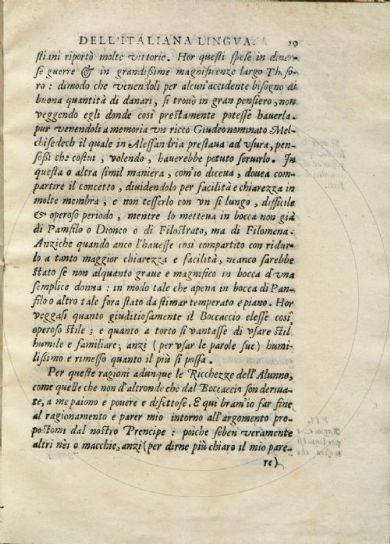 DELL'ITALIANA LINGVA. 29
stiani riportò molte vittorie. Hor questi spese in diuer-
se guerre & in grandissime magnificenze largo Thesoro
ro : dimodo che venendoli per alcun'accidente bisogno di
buona quantità di danari, si trouò in gran pensiero, non
veggendo egli donde così prestamente potesse hauerla.
pur venendoli a memoria vn ricco Giudeo nominato Mel-
chisedech il quale in Alessandria prestaua ad vsura, pen-
sossi che costui, volendo, hauerebbe potuto seruirlo. In
questa o altra simil maniera, com'io diceua, douea com-
partire il concetto, diuidendolo per facilità e chiarezza in
molte membra, e non tesserlo con vn sì lungo, difficile
& operoso periodo, mentre lo metteua in bocca non già
di Pamfilo o Dioneo o di Filostrato, ma di Filomena.
Anziche quando anco l'hauesse così compartito con ridur-
lo a tanto maggior chiarezza e facilità, neanco sarebbe
stato se non alquanto graue e magnifico in bocca d'vna
semplice donna : in modo tale che apena in bocca di Pan-
filo o altro tale fora stato da stimar temperato e piano. Hor
veggasi quanto giuditiosamente il Boccaccio elesse così
operoso stile ; e quanto a torto si vantasse di vsare stil
humile e familiare, anzi (per vsar le parole sue) humi-
lissimo e rimesso quanto il più si possa.
Per queste ragioni adunque le Ricchezze dell'Alunno,
come quelle che non d'altronde che dal Boccaccio son deriua-
te, a me paiono e pouere e difettose. E qui bram'io far fine
al ragionamento e parer mio intorno all'argomento pro-
postomi dal nostro Prencipe : poiche seben veramente
altri nèi o macchie, anzi (per dirne più chiaro il mio pare-
re)